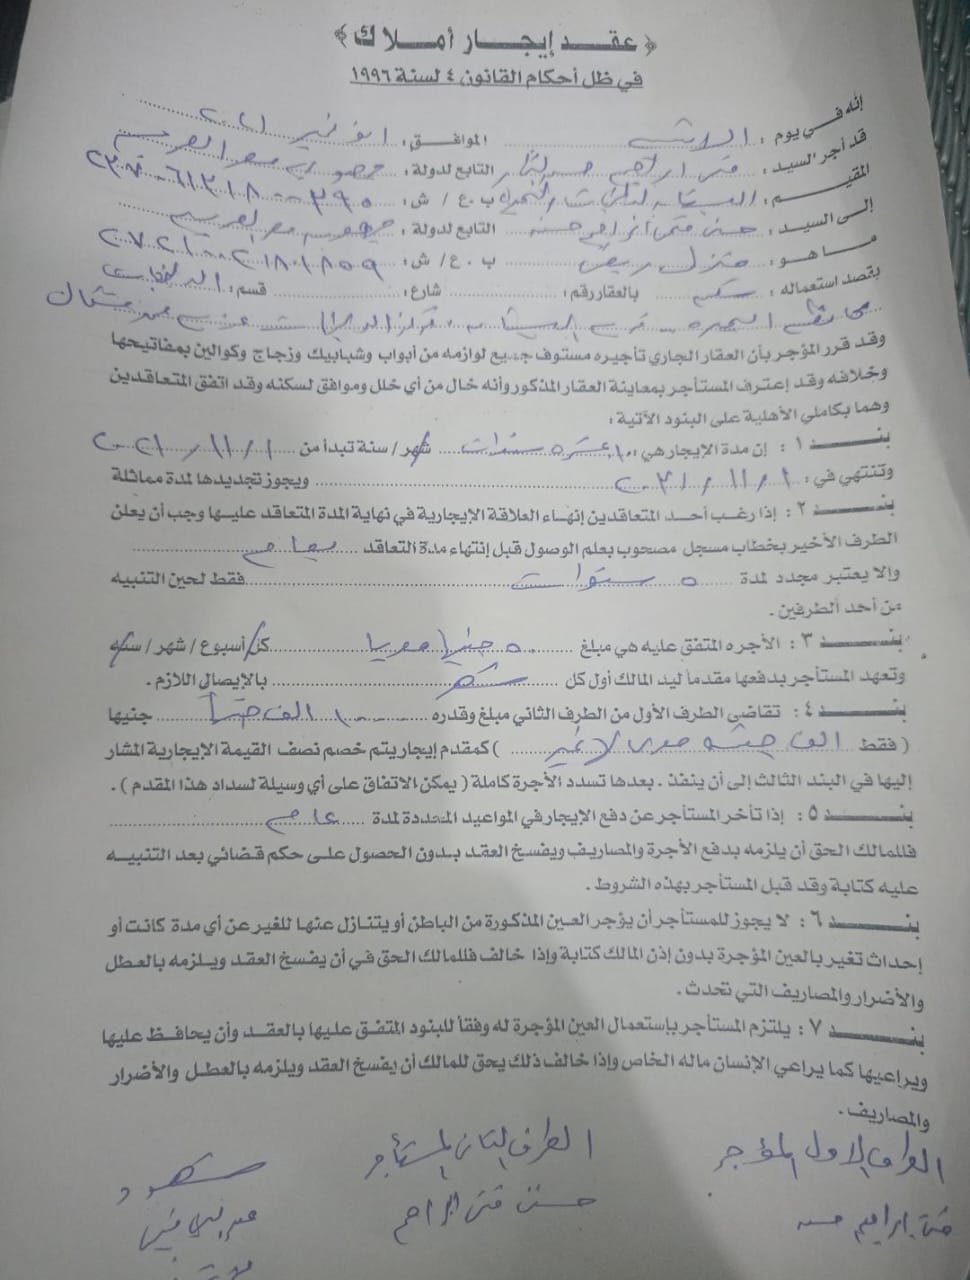 ﴿ عقد إيجار أملاك ﴾
في ظل أحكام القانون ٤ لسنة ١٩٩٦
إنه في يوم : الموافق :
قد أجر السيد : التابع لدولة : جمهورية مصر العربية
المقيم : ب . ع / ش :
إلى السيد : التابع لدولة : جمهورية مصر العربية
ماهو : منزل ريفى ب . ع / ش :
بقصد استعماله : سكن بالعقار رقم : شارع : قسم :
وقد قرر المؤجر بأن العقار الجاري تأجيره مستوف جميع لوازمه من أبواب وشبابيك وزجاج وكوالين بمفاتيحها
وخلافه وقد إعترف المستأجر بمعاينة العقار المذكور وأنه خال من أي خلل وموافق لسكنه وقد اتفق المتعاقدين
وهما بكاملي الأهلية على البنود الآتية :
بند ١ : إن مدة الإيجار هي : ١٠ عشره سنوات شهر / سنة تبدأ من ١ / ١١ / ٢٠٢١
وتنتهي في : ١ / ١١ / ٢٠٣١ ويجوز تجديدها لمدة مماثلة
بند ٢ : إذا رغب أحد المتعاقدين إنهاء العلاقة الإيجارية في نهاية المدة المتعاقد عليها وجب أن يعلن
الطرف الأخير بخطاب مسجل مصحوب بعلم الوصول قبل إنتهاء مدة التعاقد بعام
وإلا يعتبر مجدد لمدة ٥ سنوات فقط لحين التنبيه
من أحد الطرفين .
بند ٣ : الأجره المتفق عليه هي مبلغ جنيها مصريا كل أسبوع / شهر / سنه
وتعهد المستأجر بدفعها مقدماً ليد المالك أول كل شهر بالإيصال اللازم .
بند ٤ : تقاضي الطرف الأول من الطرف الثاني مبلغ وقدره الف جنيها جنيها
( فقط الف جنيه مصرى لا غير ) كمقدم إيجار يتم خصم نصف القيمة الإيجارية المشار
إليها في البند الثالث إلى أن ينفذ . بعدها تسدد الأجرة كاملة ( يمكن الاتفاق على أي وسيلة لسداد هذا المقدم ) .
بند ٥ : إذا تأخر المستأجر عن دفع الإيجار في المواعيد المحددة لمدة عام
فللمالك الحق أن يلزمه بدفع الأجرة والمصاريف ويفسخ العقد بدون الحصول على حكم قضائي بعد التنبيه
عليه كتابة وقد قبل المستأجر بهذه الشروط .
بند ٦ : لا يجوز للمستأجر أن يؤجر العين المذكورة من الباطن أو يتنازل عنها للغير عن أي مدة كانت أو
إحداث تغير بالعين المؤجرة بدون إذن المالك كتابة وإذا خالف فللمالك الحق في أن يفسخ العقد ويلزمه بالعطل
والأضرار والمصاريف التي تحدث .
بند ٧ : يلتزم المستأجر بإستعمال العين المؤجرة له وفقاً للبنود المتفق عليها بالعقد وأن يحافظ عليها
ويراعيها كما يراعي الإنسان ماله الخاص وإذا خالف ذلك يحق للمالك أن يفسخ العقد ويلزمه بالعطل والأضرار
والمصاريف .
الطرف الاول المؤجر الطرف الثانى المستأجر شهود